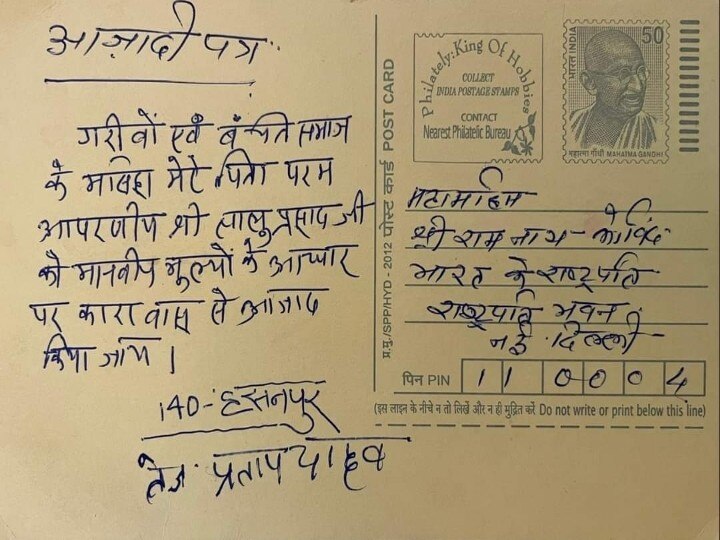 आज़ादी पत्र
गरीबों एवं बंचित समाज
के मसिहा मेरे पिता परम
आदरणीय श्री लालु प्रसाद जी
को मानवीय मुल्यों के आधार
पर कारावास से आजाद
किया जाय।
140-हसनपुर
तेज प्रताप यादव
प्र.मु./SPP/HYD - 2012 पोस्ट कार्ड POST CARD
Philately: King Of Hobbies
COLLECT
INDIA POSTAGE STAMPS
CONTACT
Nearest Philatelic Bureau
भारत INDIA
50
महात्मा गाँधी MAHATMA GANDHI
महामहिम
श्री राम नाथ-कोविंद
भारत के राष्ट्रपति
राष्ट्रपति भवन
नई दिल्ली-
पिन PIN 110004
(इस लाइन के नीचे न तो लिखें और न ही मुद्रित करें Do not write or print below this line)